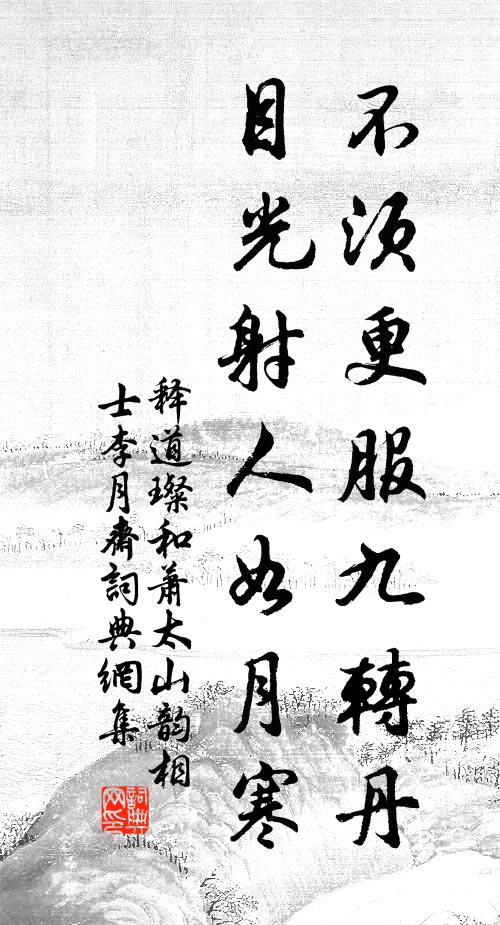 不須更服九轉丹
目光射人如月寒
释道璨和萧太山韵相
士李月齋詞典網集
詞典网印